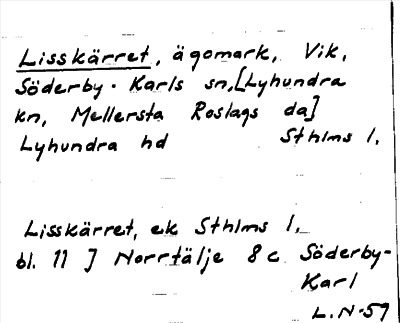 Lisskärret, ägomark, Vik,
Söderby-Karls sn, [Lyhundra
kn, Mellersta Roslags da]
Lyhundra hd Sthlms l.
Lisskärret, ek Sthlms l.
bl. 11 J Norrtälje 8 c Söderby-
Karl
L.N-59